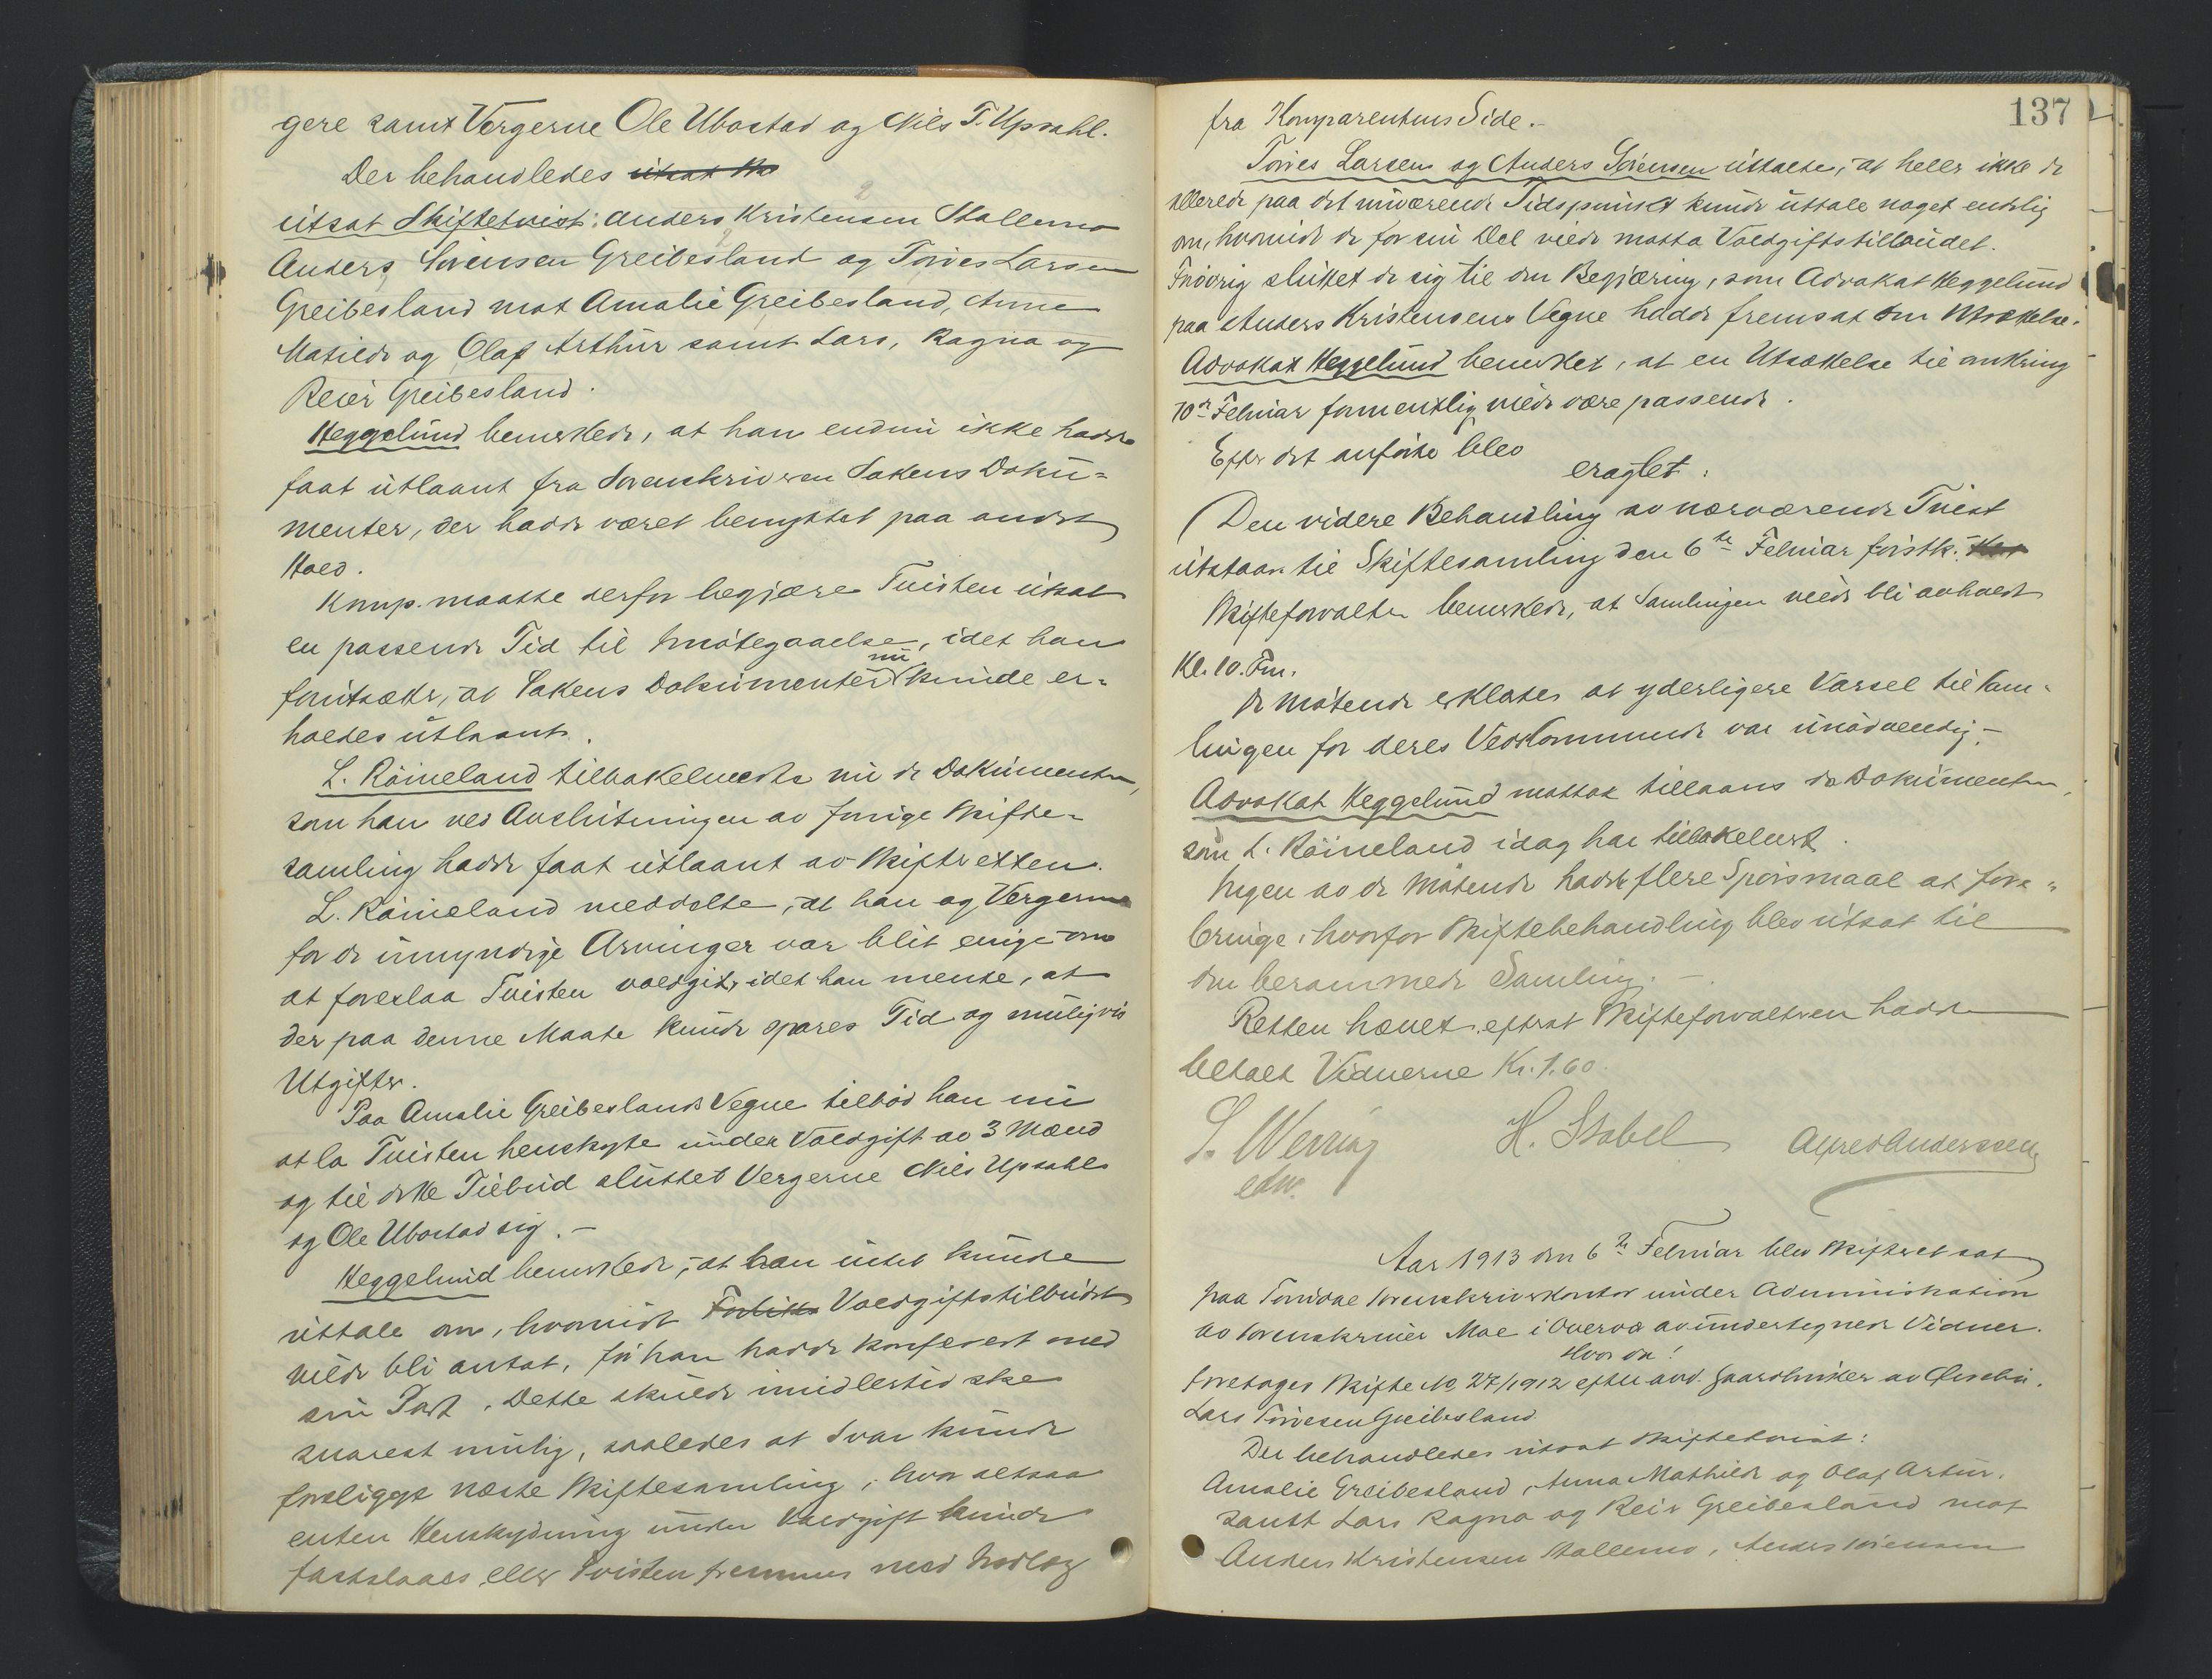 gere samt Vergerne Ole Ubostad og Nils T. Upsahl.
Der behandledes utsat
utsat Skiftetvist: Anders Kristensen Stallemo
Anders Sørensen Greibesland og Torjes Larsen
Greibesland mot Amalie Greibesland, Anne
Matilde og Olaf Arthur samt Lars, Ragna og
Reier Greibesland.
Heggelund bemerkede, at han endnu ikke hadde
faat utlaant fra Sorenskriveren Sakens Doku=
menter, der hadde været benyttet paa andet
Sted.
Komp. maatte derfor begjære Tvisten utsat
en passende Tid til Imøtegaaelse, idet han
forutsætte, at Sakens Dokumenter nu kunde er=
holdes utlaant.
L. Røineland tilbakeleverte nu de Dokumenter,
som han ved Avslutningen av forrige Skifte=
samling hadde faat utlaant av Skifteretten.
L. Røineland meddelte, at han og Vergerne
for de umyndige Arvinger var blit enige om
at foreslaa Tvisten voldgit, idet han mente, at
der paa denne Maate kunde spares Tid og muligvis
Utgifter.
Paa Amalie Greibeslands Vegne tilbød han nu
at la Tvisten henskyte under Voldgift av 3 Mænd
og til dette Tilbud sluttet Vergerne Nils Upsahl
og Ole Ubostad sig. –
Heggelund bemerkede, at han intet kunde
uttale om, hvorvidt Forliks Voldgiftstilbudet
vilde bli antat, før han hadde konferert med
sin Part. Dette skulde imidlertid ske
snarest mulig, saaledes at Svar kunde
foreligge næste Skiftesamling, hvor altsaa
enten Henskydning under Voldgift kunde
fastslaaes eller Tvisten fremmes med Indlæg
137
fra Komparentens Side. –
Torjes Larsen og Anders Sørensen uttalte, at heller ikke de
allerede paa det nuværende Tidspunkt kunde uttale noget endelig
om, hvorvidt de for sin Del vilde motta Voldgiftstilbudet.
Forøvrig sluttet de sig til den Begjæring, som Advokat Heggelund
paa Anders Kristensens Vegne hadde fremsat om Utsættelse.
Advokat Heggelund bemerket, at en Utsættelse til omkring
10de Februar formentlig vilde være passende.
Efter det anførte blev
eragtet:
Den videre Behandling av nærværende Tvist
utstaar til Skiftesamling den 6te Februar førstk.
Skifteforvalteren bemerkede, at Samlingen vilde bli avholdt
Kl. 10. Fm.
De møtende erklærte at yderligere Varsel til Sam=
lingen for deres Vedkommende var unødvendig. –
Advokat Heggelund mottok tillaans de Dokumenter,
som L. Røineland idag har tilbakelevert.
Ingen av de møtende hadde flere Spørsmaal at fore=
bringe, hvorfor Skiftebehandling blev utsat til
den berammede Samling. –
Retten hævet, efterat Skifteforvalteren hadde
betalt Vidnerne Kr. 1.60.
S. Werring H. Stabel Alfred Anderssen
edv.
Aar 1913 den 6te Februar blev Skifteret sat
paa Torridal Sorenskriverkontor under Administration
av Sorenskriver Moe i Overvær av undertegnede Vidner.
Hvor da!
foretages Skifte No 27/1912 efter avd. Gaardbruker av Øvrebø,
Lars Torjesen Greibesland
Der behandledes utsat Skiftetvist:
Amalie Greibesland, Anna Mathilde og Olaf Artur,
samt Lars Ragna og Reier Greibesland mot
Anders Kristensen Stallemo, Anders Sørensen